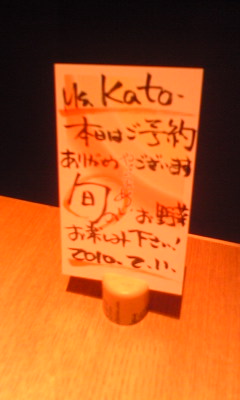 Ms. Kato-
本日はご予約
ありがとうございます
旬の お野菜
お楽しみ下さい!
2010.2.11.